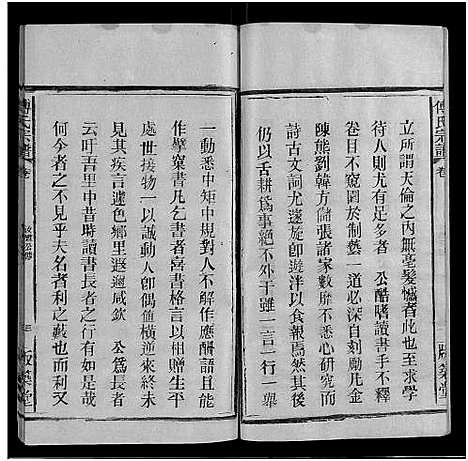 傅氏宗譜
卷
版築堂
立所謂天倫之內無毫髮憾者此也至求學
待人則尤有足多者　公酷嗜讀書手不釋
卷目不窺園於制藝一道必深自刻勵凡金
陳熊劉韓方儲張諸家數靡不悉心研究而
詩古文詞尤邃旋卽遊泮以食報焉然其後
仍以舌耕爲事絶不外干雖一言一行一舉
一動悉中矩中規對人不解作應酬語且尤
作擘窠書凡乞書者喜書格言以相贈生平
處世接物一以誠動人卽偶値橫逆來終未
見其疾言遽色鄉里遐邇咸欽　公爲長者
云吁吾里中昔時讀書長者之行有如此者
何今者之不見乎夫名者利之藪也而利又
傅氏宗譜
卷
三
版築堂